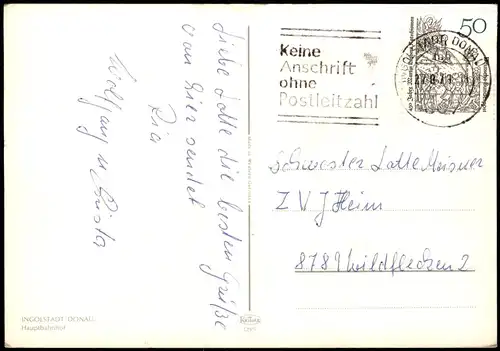 Liebe Lotte die besten Grüße
von hier sendet
Ria
Wolfgang u. Christa
Keine
Anschrift
ohne
Postleitzahl
50
Schwester Lotte Meisner
Z V J Heim
8789 Wildflecken 2
INGOLSTADT/DONAU
Hauptbahnhof